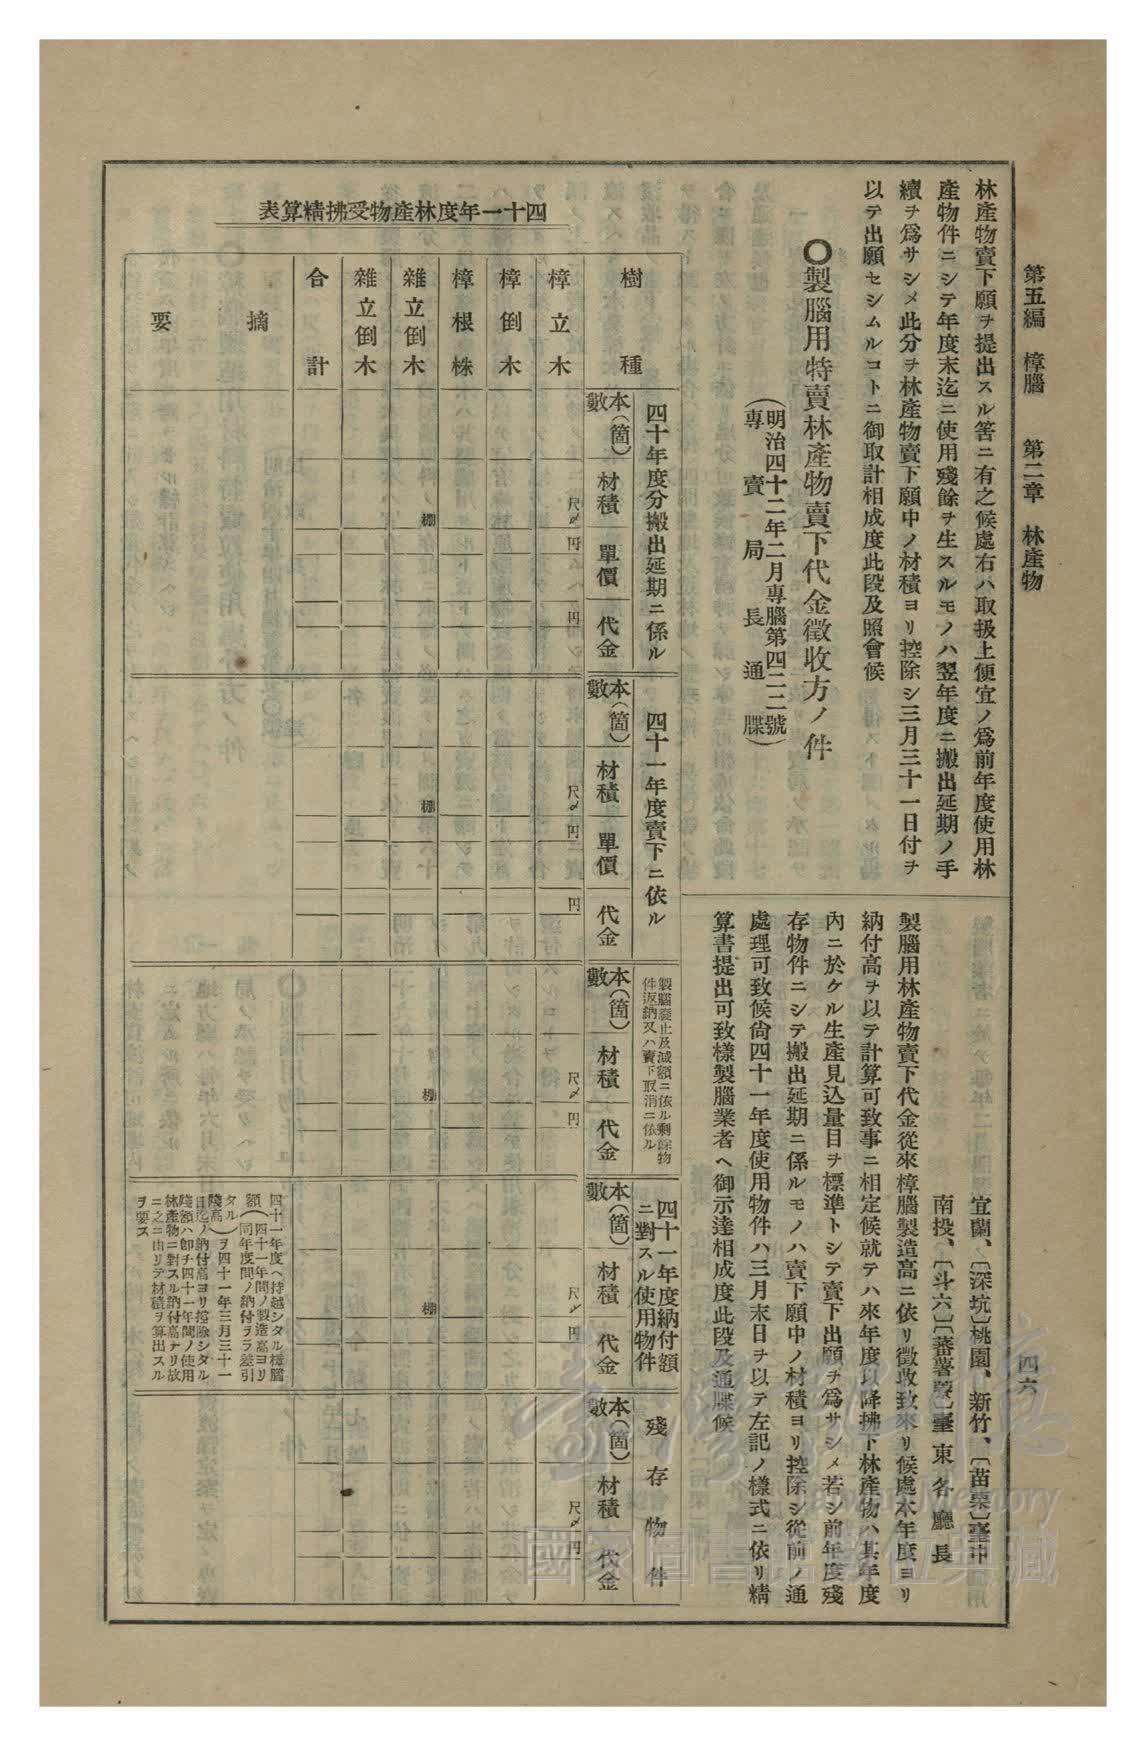 第五編　樟腦　　第二章　林產物
四六
林產物賣下願ヲ提出スル筈ニ有之候處右ハ取扱上便宜ノ爲前年度使用林
產物件ニシテ年度末迄ニ使用殘餘ヲ生スルモノハ翌年度ニ搬出延期ノ手
續ヲ爲サシメ此分ヲ林產物賣下願中ノ材積ヨリ控除シ三月三十一日付ヲ
以テ出願セシムルコトニ御取計相成度此段及照會候
〇製腦用特賣林產物賣下代金徵收方ノ件
（明治四十二年二月專腦第四二二號
專賣局長通牒）
宜蘭、〔深坑〕桃園、新竹、〔苗栗〕臺中
南投、〔斗六〕〔蕃薯藔〕臺東各廳長
製腦用林產物賣下代金從來樟腦製造高ニ依リ徵收致來リ候處本年度ヨリ
納付高ヲ以テ計算可致事ニ相定候就テハ來年度以降拂下林產物ハ其年度
內ニ於ケル生產見込量目ヲ標準トシテ賣下出願ヲ爲サシメ若シ前年度殘
存物件ニシテ搬出延期ニ係ルモノハ賣下願中ノ材積ヨリ控除シ從前ノ通
處理可致候尙四十一年度使用物件ハ三月末日ヲ以テ左記ノ樣式ニ依リ精
算書提出可致樣製腦業者ヘ御示達相成度此段及通牒候
四十一年度林產物受拂精算表
樹種
四十年度分搬出延期ニ係ル
本數（箇）
材積
單價
代金
四十一年度賣下ニ依ル
本數（箇）
材積
單價
代金
製腦廢止及減額ニ依ル剩餘物
件返納又ハ賣下取消ニ依ル
本數（箇）
材積
代金
四十一年度納付額
ニ對スル使用物件
本數（箇）
材積
代金
殘存物件
本數（箇）
材積
代金
樟立木
尺〆
円
円
尺〆
円
円
尺〆
円
尺〆
円
尺〆
円
樟倒木
樟根株
雜立倒木
棚
棚
棚
棚
雜立倒木
合計
摘要
四十一年度ヘ持越シタル樟腦
額（四十一年間ノ製造高ヨリ
同年度間ノ納付ヲ差引
タル殘高）ヲ四十一年三月三十一
日迄ノ納付高ヨリ控除シタル
殘額ハ卽チ四十一年間ノ使用
林產物ニ對スル納付高ナリ故
ニ之ニ由リテ材積ヲ算出スル
ヲ要ス
臺灣記憶
Taiwan Memory
國家圖書館數位典藏